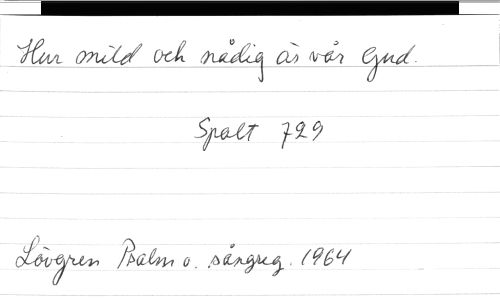 Hur mild och nådig är vår Gud.
Spalt 729
Lövgren Psalm o. sångreg. 1964